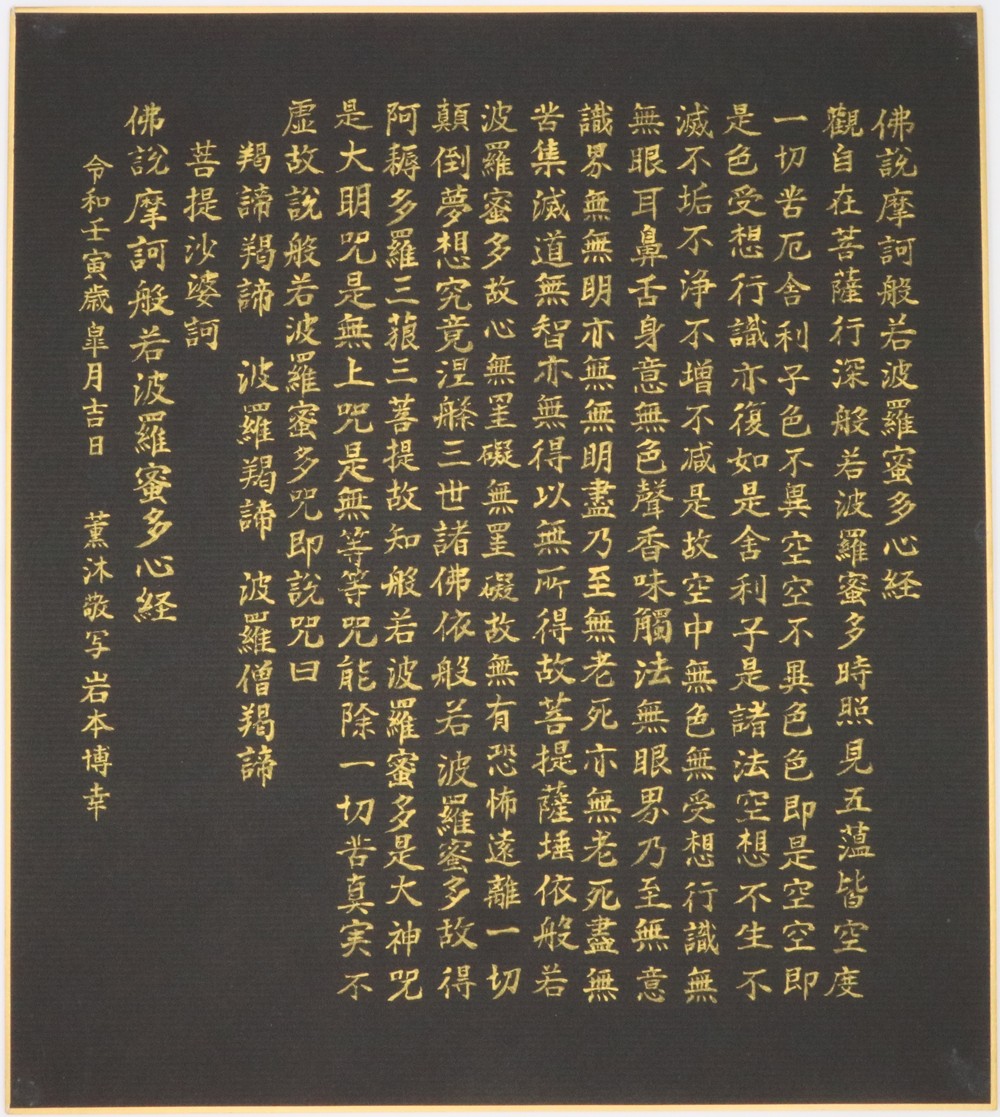 佛說摩訶般若波羅蜜多心経
觀自在菩薩行深般若波羅蜜多時照見五薀皆空度
一切苦厄舎利子色不異空空不異色色即是空空即
是色受想行識亦復如是舎利子是諸法空想不生不
滅不垢不浄不增不減是故空中無色無受想行識無
無眼耳鼻舌身意無色聲香味觸法無眼界乃至無意
識界無無明亦無無明盡乃至無老死亦無老死盡無
苦集滅道無智亦無得以無所得故菩提薩埵依般若
波羅蜜多故心無罣礙無罣礙故無有恐怖遠離一切
顛倒夢想究竟涅槃三世諸佛依般若波羅蜜多故得
阿耨多羅三藐三菩提故知般若波羅蜜多是大神咒
是大明咒是無上咒是無等等咒能除一切苦真実不
虛故說般若波羅蜜多咒即說咒曰
羯諦羯諦　波羅羯諦　波羅僧羯諦
菩提沙婆訶
佛說摩訶般若波羅蜜多心経
令和壬寅歳皐月吉日　薫沐敬写岩本博幸